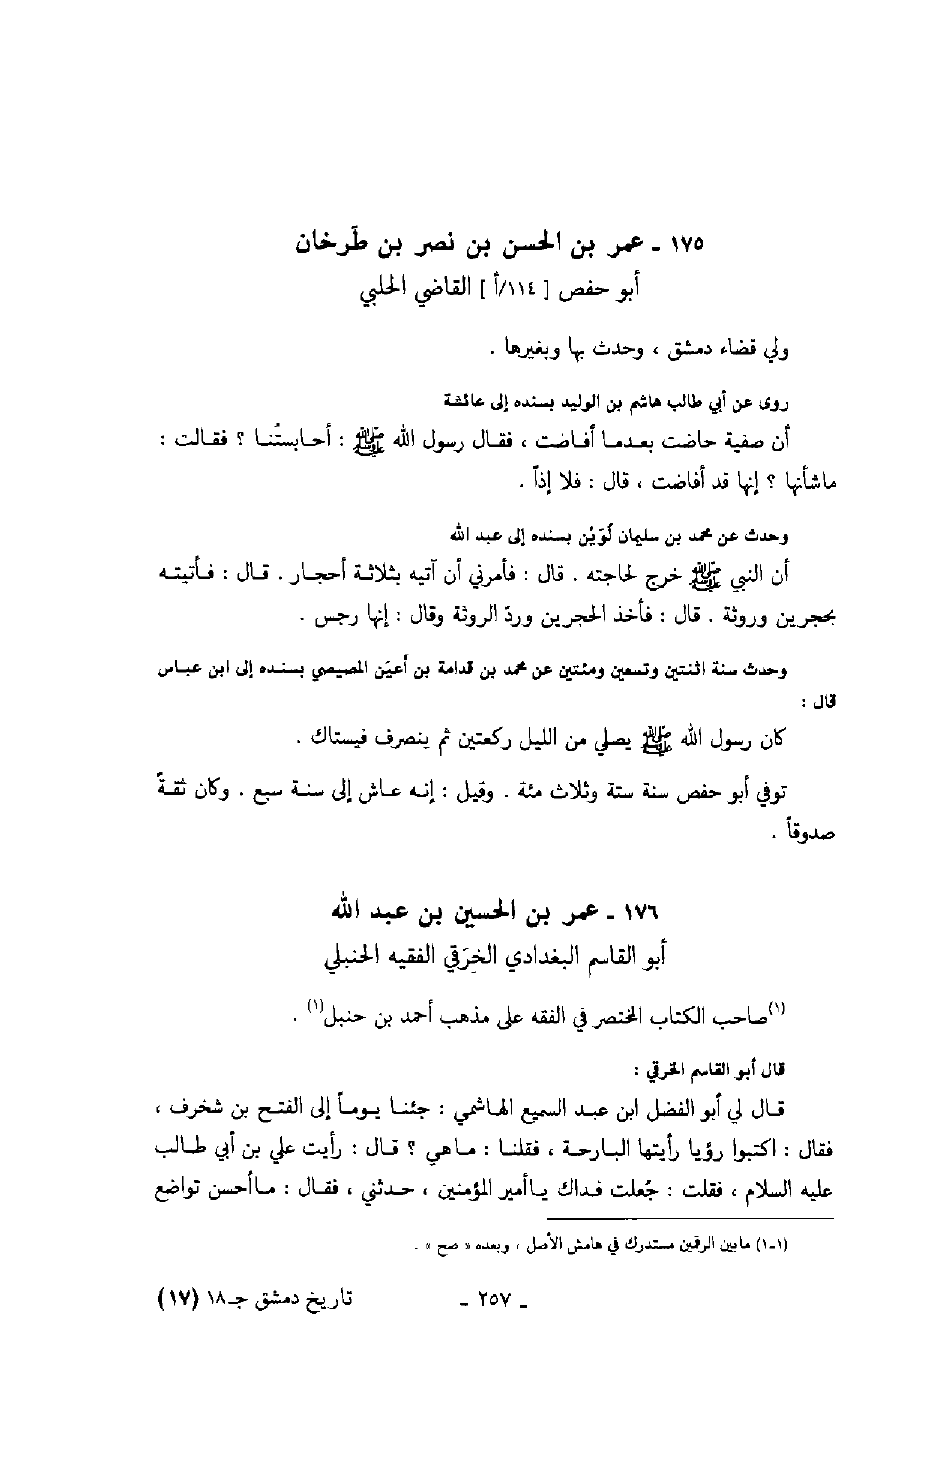 ١٧٥ ـ عمر بن الحسن بن نصر بن طَرخان
أبو حفص [ ١١٤/أ ] القاضي الحلبي
ولي قضاء دمشق ، وحدث بها وبغيرها .
روى عن أبي طالب هاشم بن الوليد بسنده إلى عائشة
أن صفية حاضت بعدما أفاضت ، فقال رسول الله ﷺ : أحابستُنا ؟ فقالت :
ماشأنها ؟ إنها قد أفاضت ، قال : فلا إذاً .
وحدث عن محمد بن سليمان لُوَيْن بسنده إلى عبد الله
أن النبي ﷺ خرج لحاجته . قال : فأمرني أن آتيه بثلاثة أحجار . قال : فأتيته
بحجرين وروثة . قال : فأخذ الحجرين وردّ الروثة وقال : إنها رجس .
وحدث سنة اثنتين وتسعين ومئتين عن محمد بن قدامة بن أعيَن المصيصي بسنده إلى ابن عباس
قال :
كان رسول الله ﷺ يصلي من الليل ركعتين ثم ينصرف فيستاك .
توفي أبو حفص سنة ستة وثلاث مئة . وقيل : إنه عاش إلى سنة سبع . وكان ثقةً
صدوقاً .
١٧٦ ـ عمر بن الحسين بن عبد الله
أبو القاسم البغدادي الخِرَقي الفقيه الحنبلي
(١)صاحب الكتاب المختصر في الفقه على مذهب أحمد بن حنبل(١) .
قال أبو القاسم الخرقي :
قال لي أبو الفضل ابن عبد السميع الهاشمي : جئنا يوماً إلى الفتح بن شخرف ،
فقال : اكتبوا رؤيا رأيتها البارحة ، فقلنا : ماهي ؟ قال : رأيت علي بن أبي طالب
عليه السلام ، فقلت : جُعلت فداك ياأمير المؤمنين ، حدثني ، فقال : ماأحسن تواضع
(١ـ١) مابين الرقمين مستدرك في هامش الأصل ، وبعده « صح » .
ـ ٢٥٧ ـ تاريخ دمشق جـ١٨ (١٧)